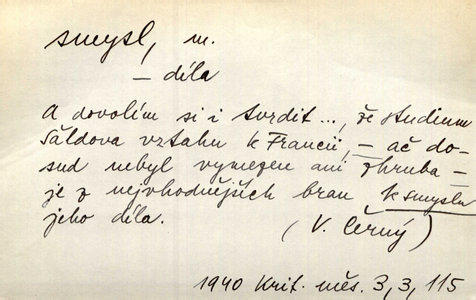 smysl, m.
— díla
A dovolím si i tvrdit..., že studium
Šaldova vztahu k Francii, — ač do-
sud nebyl vymezen ani zhruba —
je z nejvhodnějších bran k smyslu
jeho díla.
(V. Černý)
1940 Krit. měs. 3, 3, 115